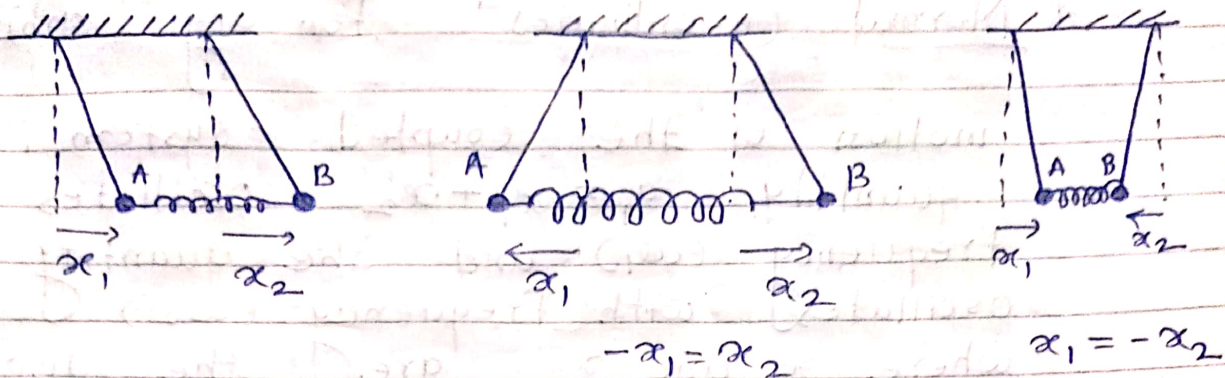 A B
x₁ x₂
A B
x₁ x₂
-x₁ = x₂
A B
x₁ x₂
x₁ = -x₂